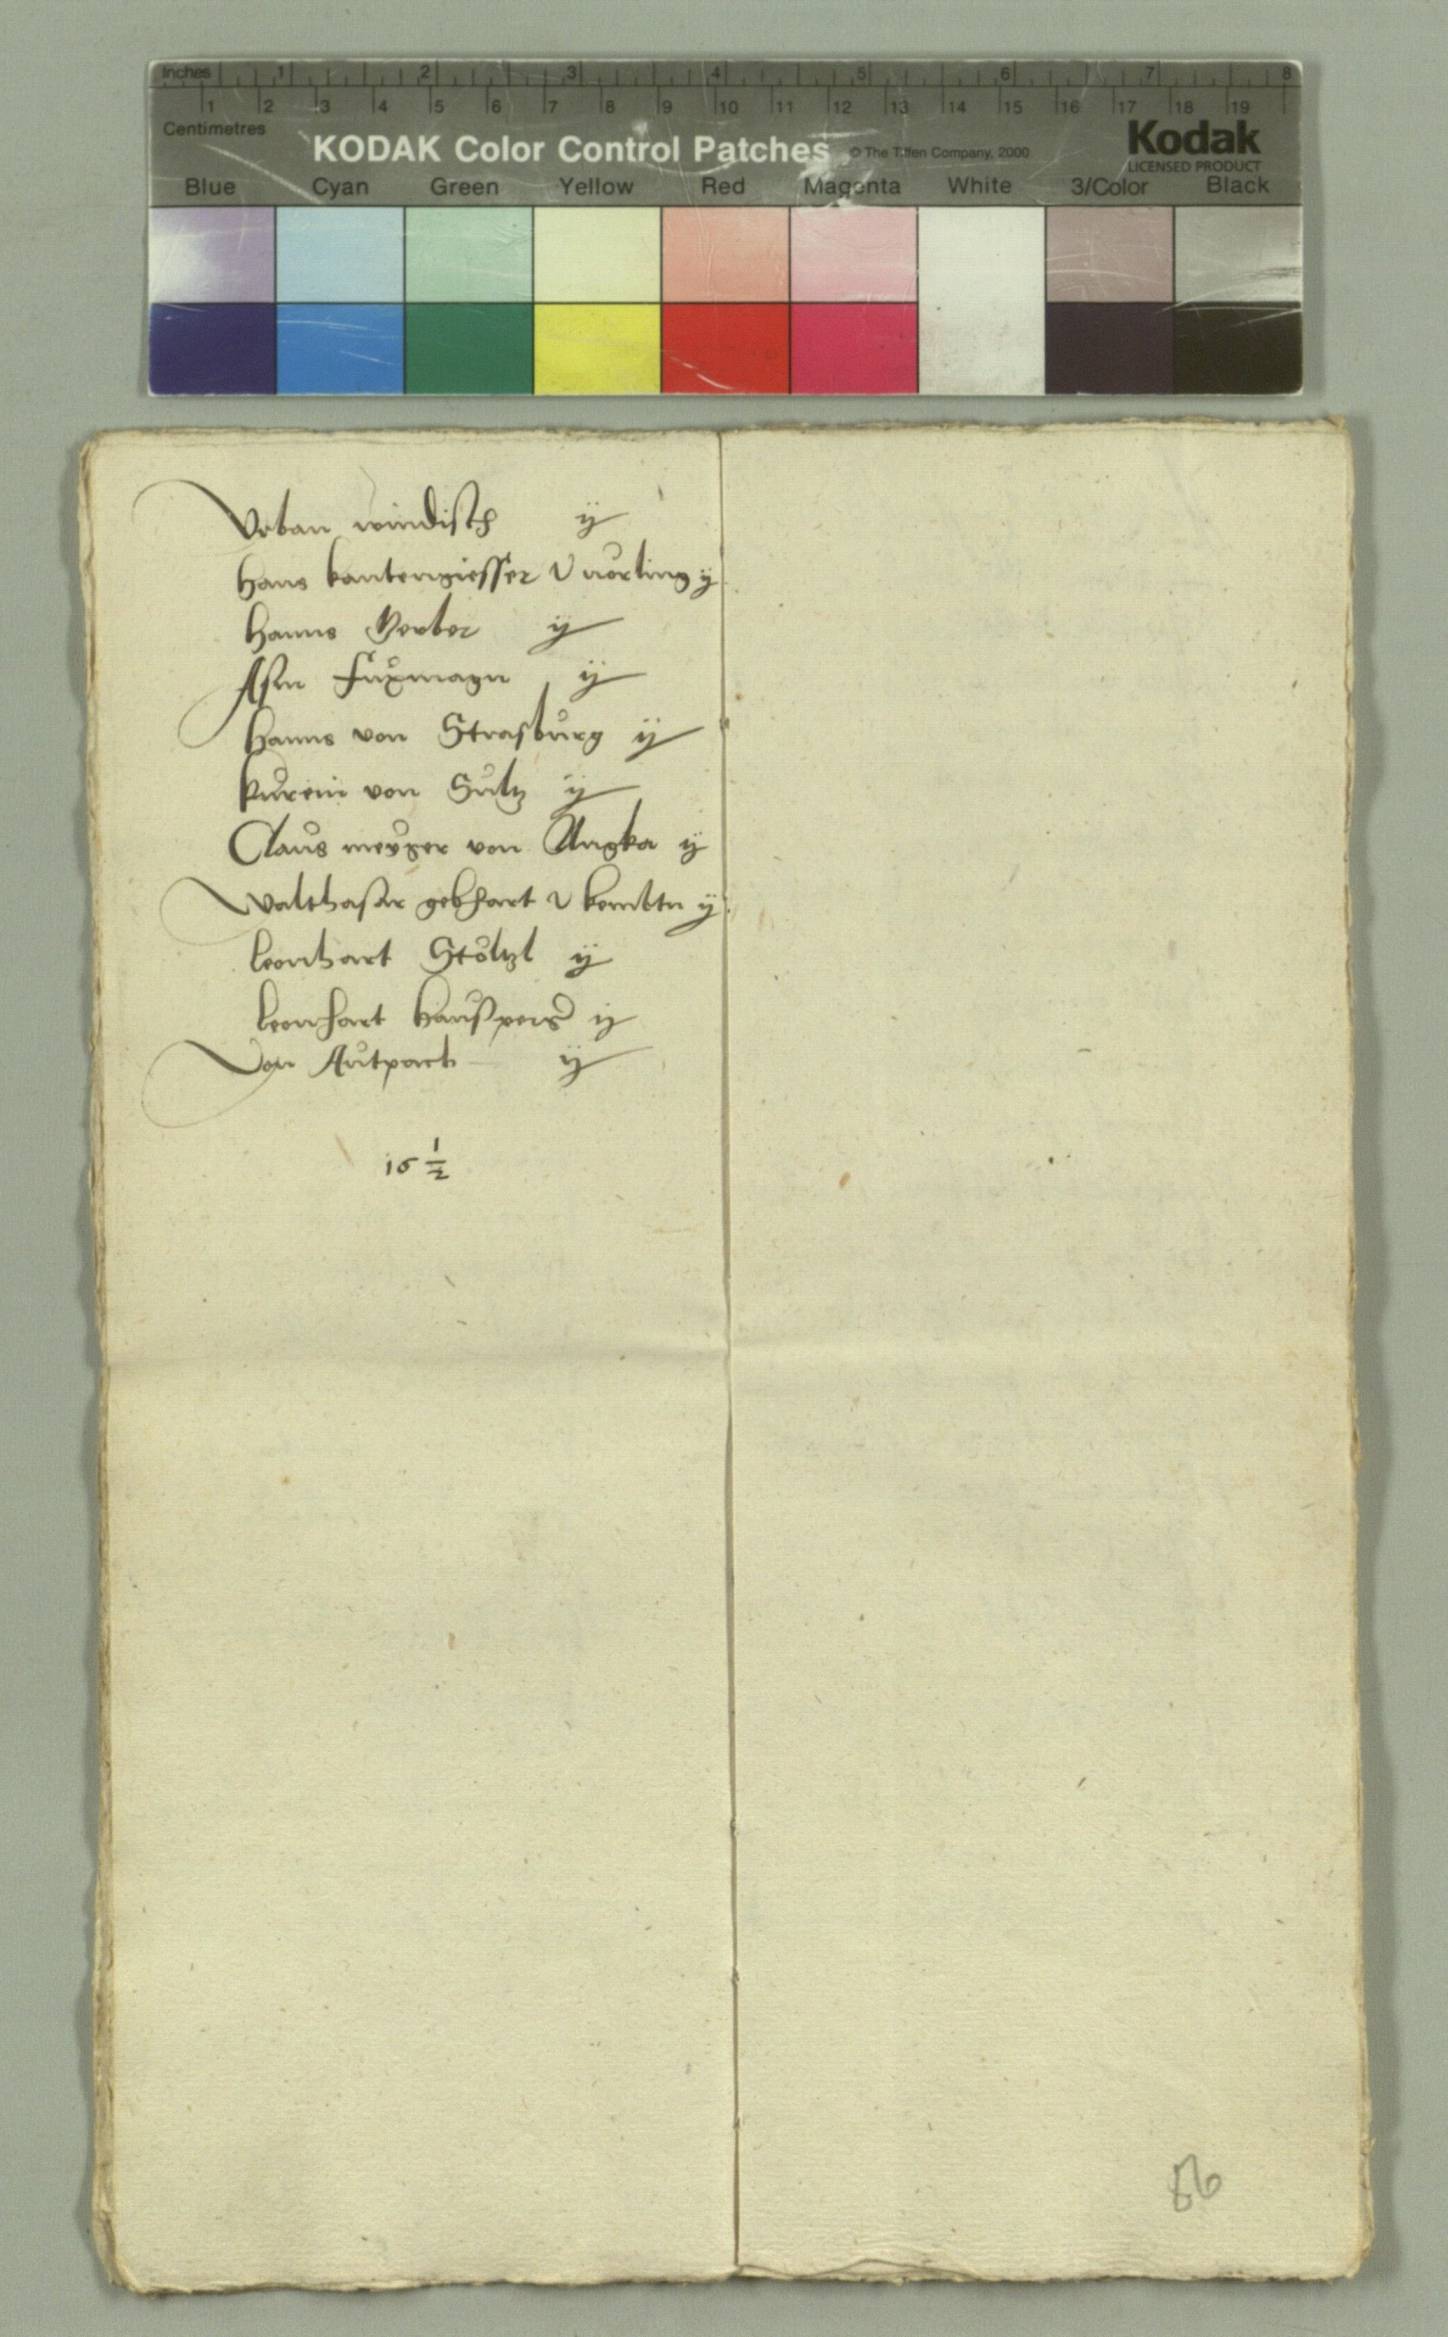 Inches 1 2 3 4 5 6 7 8
1 2 3 4 5 6 7 8 9 10 11 12 13 14 15 16 17 18 19
Centimetres
KODAK Color Control Patches © The Tiffen Company, 2000 Kodak
LICENSED PRODUCT
Blue Cyan Green Yellow Red Magenta White 3/Color Black
Vrban windisch ij
hans kantengiesser v norling ij
hanns ij
Asm ij
Hanns von Strasburg ij
von Sultz ij
Claus von ij
Walthasar gebhart v kembtn ij
leonhart Stöltzl ij
leonhart ij
Von Autpach ij
16 1/2
86